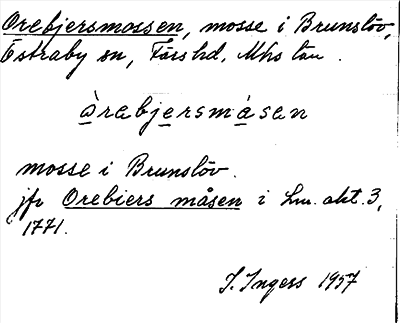 Orebjersmossen, mosse i Brunslöv,
Östraby sn, Färs hd, Mhs län.
òrebjersmåsen
mosse i Brunslöv.
jfr Orebiers måsen i Lm. akt. 3,
1771.
I. Ingers 1957